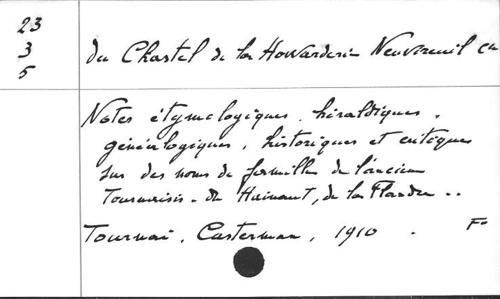 23
3
5
du Chastel de la Howarderie Neuvireuil c.
Notes étymologiques, héraldiques,
généalogiques, historiques et critiques
sur des noms de famille de l'ancien
Tournaisis - du Hainaut, de la Flandre ..
Tournai, Casterman, 1910 .